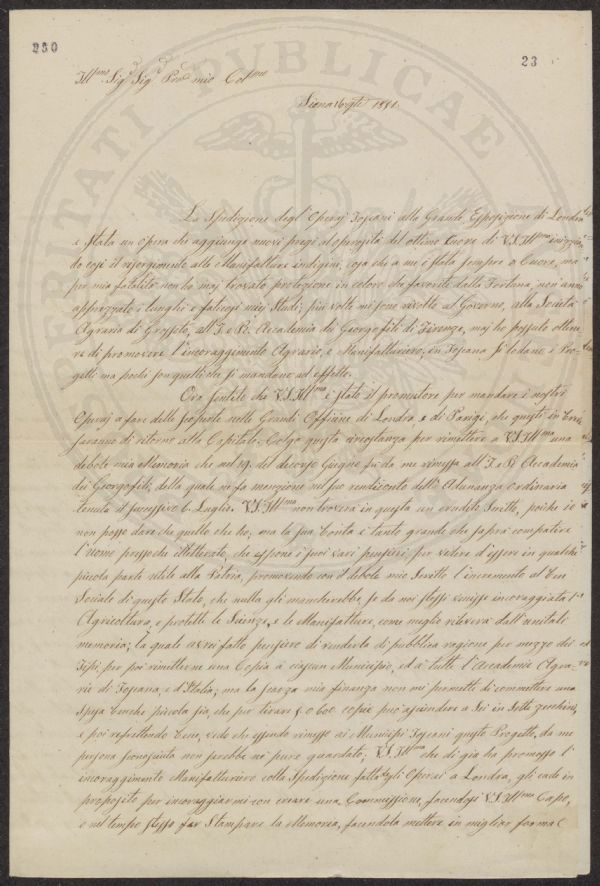 230
23
Ill.mo Sig.r Sig.r Pro.n mio Col.mo
Siena 16 9bre 1851.
La Spedizione degl'Operaj Toscani alla Grande Esposizione di Londra
è stata un opera che aggiunge nuovi pregi all'operosità del ottimo Cuore di V.S. Ill.ma
do così il risorgimento alle Manifatture indigine, cosa che a me è stata sempre a Cuore, ma
per mia fatalità non ha maj trovato protezione in coloro che favoriti dalla Fortuna, non anno
apprezzato i lunghi e faticosi miej Studj; più volte mi sono rivolto al Governo, alla Società
Agraria di Grosseto, all'I. e R. Accademia dei Georgofili di Firenze, maj ho possuto ottene,
re di promovere l'incoraggimento Agrario, e Manifatturiero, in Toscana si lodano i Pro,
getti ma pochi son quelli che si mandano ad effetto.
Ora sentito che V.S. Ill.ma è stato il promotore per mandare i nostri
Operaj a fare delle scoperte nelle Grandi Officine di Londra, e di Parigi, che questi in breve
faranno di ritorno alla Capitale. Colgo questa circostanza per rimettere a V.S. Ill.ma una
debole mia Memoria che nel 19. del decorso Giugno fù da me rimessa all'I. e R. Accademia
dei Georgofili; della quale ne fa menzione nel suo rendiconto dell'Adunanza Ordinaria
tenuta il successivo 6. Luglio. V.S. Ill.ma non troverà in questa un erudito Scritto, poichè io
non posso dare che quello che ho, ma la sua bontà è tanto grande che saprà compatire
l'uomo pressochè illetterato, che espone i suoi varj pensieri, per volere d'essere in qualche
piccola parte utile alla Patria, promovendo con il debole mio Scritto l'incremento al ben
Sociale di questo Stato, che nulla gli mancherebbe se da noi stessi venisse incoraggiata l'
Agricoltura, e protette le Scienze, e le Manifatture, come meglio rileverà dall'unitali
memoria; la quale avrei fatto pensiero di renderla di pubblica ragione per mezzo dei
Tipi, per poi rimetterne una Copia a ciascun Municipio, ed a tutte l'Accademie Agra,
rie di Toscana, e d'Italia; ma la scarza mia finanza non mi permette di commettere una
spesa benchè piccola sia, che per tirare 5. o 600 copie può ascendere a Sei in Sette zecchini,
e poi rispettando bene, credo che essendo rimesso ai Municipj Toscani questo Progetto, da me
persona sconosciuta non sarebbe nè pure guardato; V.S. Ill.ma che di già ha promosso l'
incoraggimento Manifatturiero colla Spedizione fatta degli Operai a Londra, gli cade in
proposito per incoraggiarmi con creare una Commissione, facendosi V.S. Ill.ma Capo,
e nel tempo stesso far Stampare la Memoria, facendola mettere in miglior forma